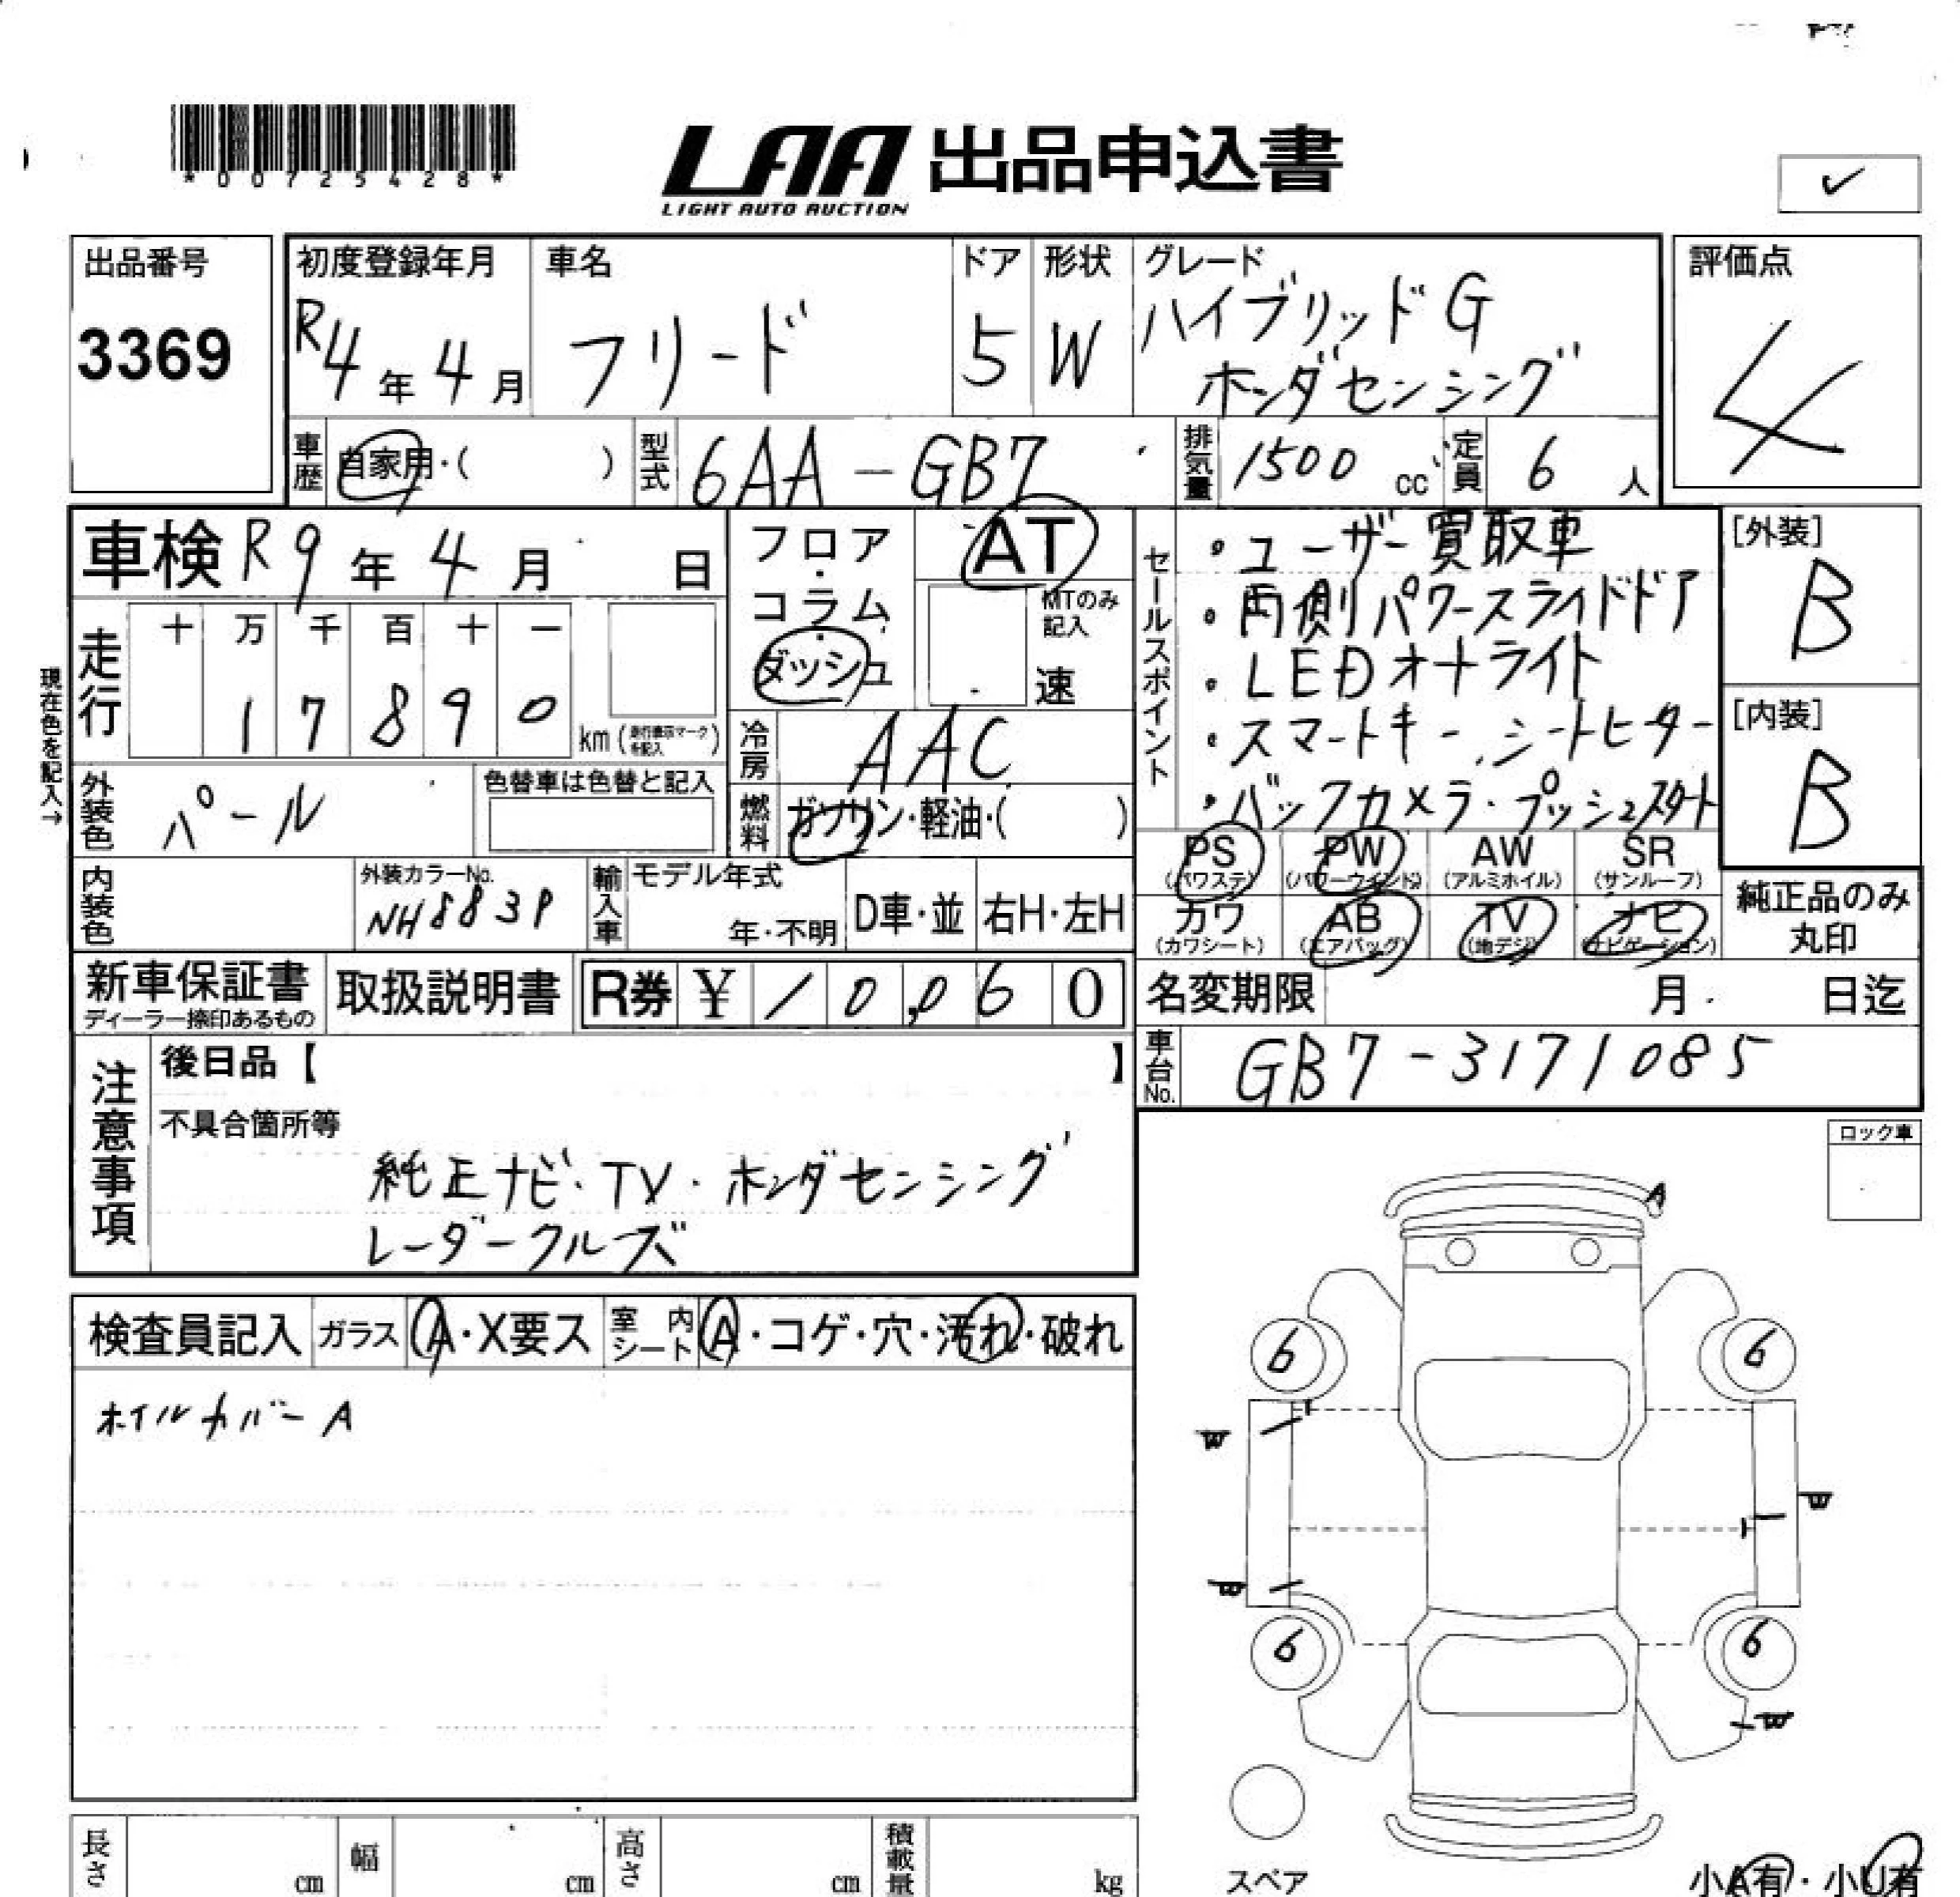 *00725428*
LAA 出品申込書
LIGHT AUTO AUCTION
✓
出品番号
3369
初度登録年月
R4年4月
車名
フリード
ドア
5
形状
W
グレード
ハイブリッドG
ホンダセンシング
評価点
4
車歴
自家用・( )
型式
6AA-GB7
排気量
1500 cc
定員
6人
車検 R9年4月 日
フロア・コラム・ダッシュ
AT
MTのみ記入
速
セールスポイント
・ユーザー買取車
・両側パワースライドドア
・LEDオートライト
・スマートキー、シートヒーター
・バックカメラ・プッシュスタート
[外装]
B
[内装]
B
現在色を記入→
走行
十 万 千 百 十 一
1 7 8 9 0
km (走行表示マークを記入)
冷房
AAC
外装色
パール
色替車は色替と記入
燃料
ガソリン・軽油・( )
PS (パワステ)
PW (パワーウインド)
AW (アルミホイル)
SR (サンルーフ)
カワ (カワシート)
AB (エアバッグ)
TV (地デジ)
ナビ (ナビゲーション)
純正品のみ
丸印
内装色
外装カラーNo.
NH883P
輸入車
モデル年式
年・不明
D車・並
右H・左H
新車保証書
ディーラー捺印あるもの
取扱説明書
R券 ¥10,060
名変期限 月 日迄
車台No.
GB7-3171085
注意事項
後日品【 】
不具合箇所等
純正ナビ・TV・ホンダセンシング
レーダークルーズ
ロック車
A
検査員記入
ガラス
A・X要ス
室内シート
A・コゲ・穴・汚れ・破れ
ホイルカバーA
6
6
W
W
W
6
6
W
長さ cm
幅 cm
高さ cm
積載量 kg
スペア
小A有・小U有